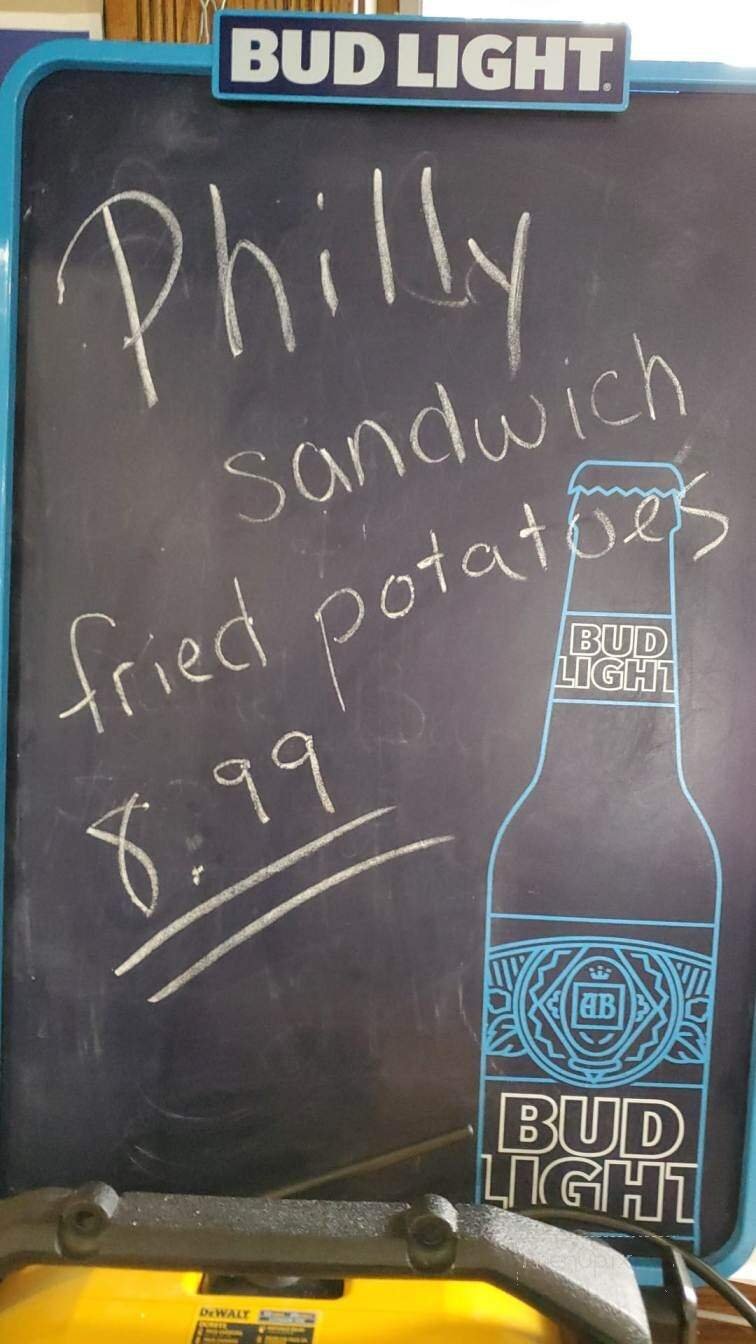 BUD LIGHT
Philly
sandwich
fried potatoes
8.99
BUD
LIGHT
AB
BUD
LIGHT
DEWALT